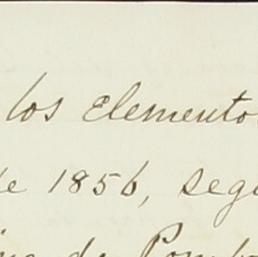 los elemento
de 1856, segu
de Pomb